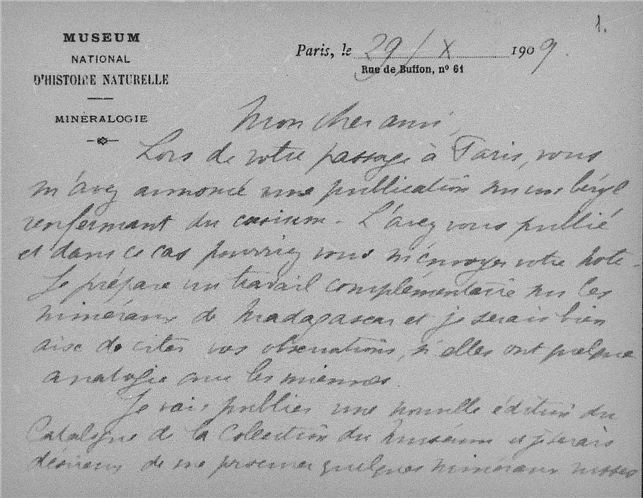 1.
MUSEUM
NATIONAL
D'HISTOIRE NATURELLE
MINÉRALOGIE
Paris, le 29/X 1909.
Rue de Buffon, nº 61
Mon cher ami,
Lors de votre passage à Paris, vous
m'avez annoncé une publication sur un béryl
renfermant du caesium. L'avez vous publié
et dans ce cas pourriez vous m'envoyer votre note.
Je prépare un travail complémentaire sur les
minéraux de Madagascar et je serais bien
aise de citer vos observations, si elles ont quelque
analogie avec les miennes.
Je vais publier une nouvelle édition du
Catalogue de la Collection du Muséum et je serais
désireux de me procurer quelques minéraux russes